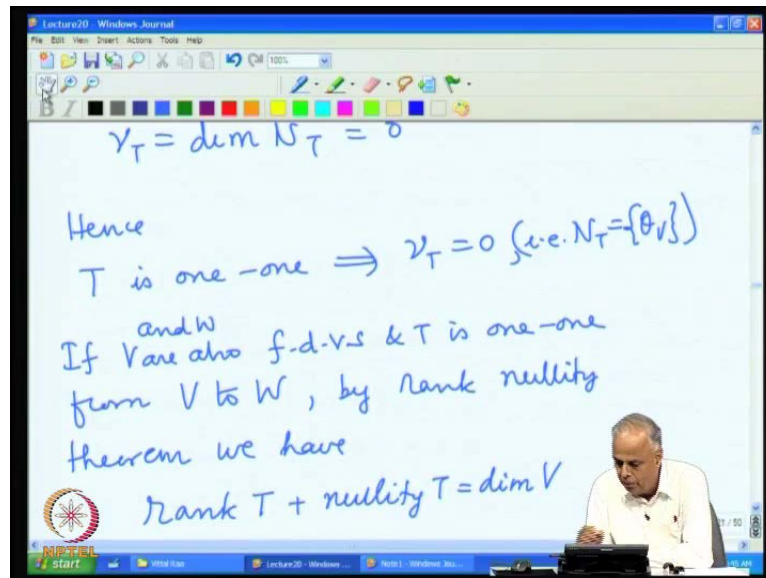 Lecture20 - Windows Journal
File Edit View Insert Actions Tools Help
100%
B I
ν_T = dim N_T = 0
Hence
T is one-one ⟹ ν_T = 0 (i.e. N_T = {θ_V})
and W
If V are also f.d.v.s & T is one-one
from V to W, by rank nullity
theorem we have
rank T + nullity T = dim V
NPTEL
start Vittal Rao Lecture20 - Windows ... Note1 - Windows Jou...